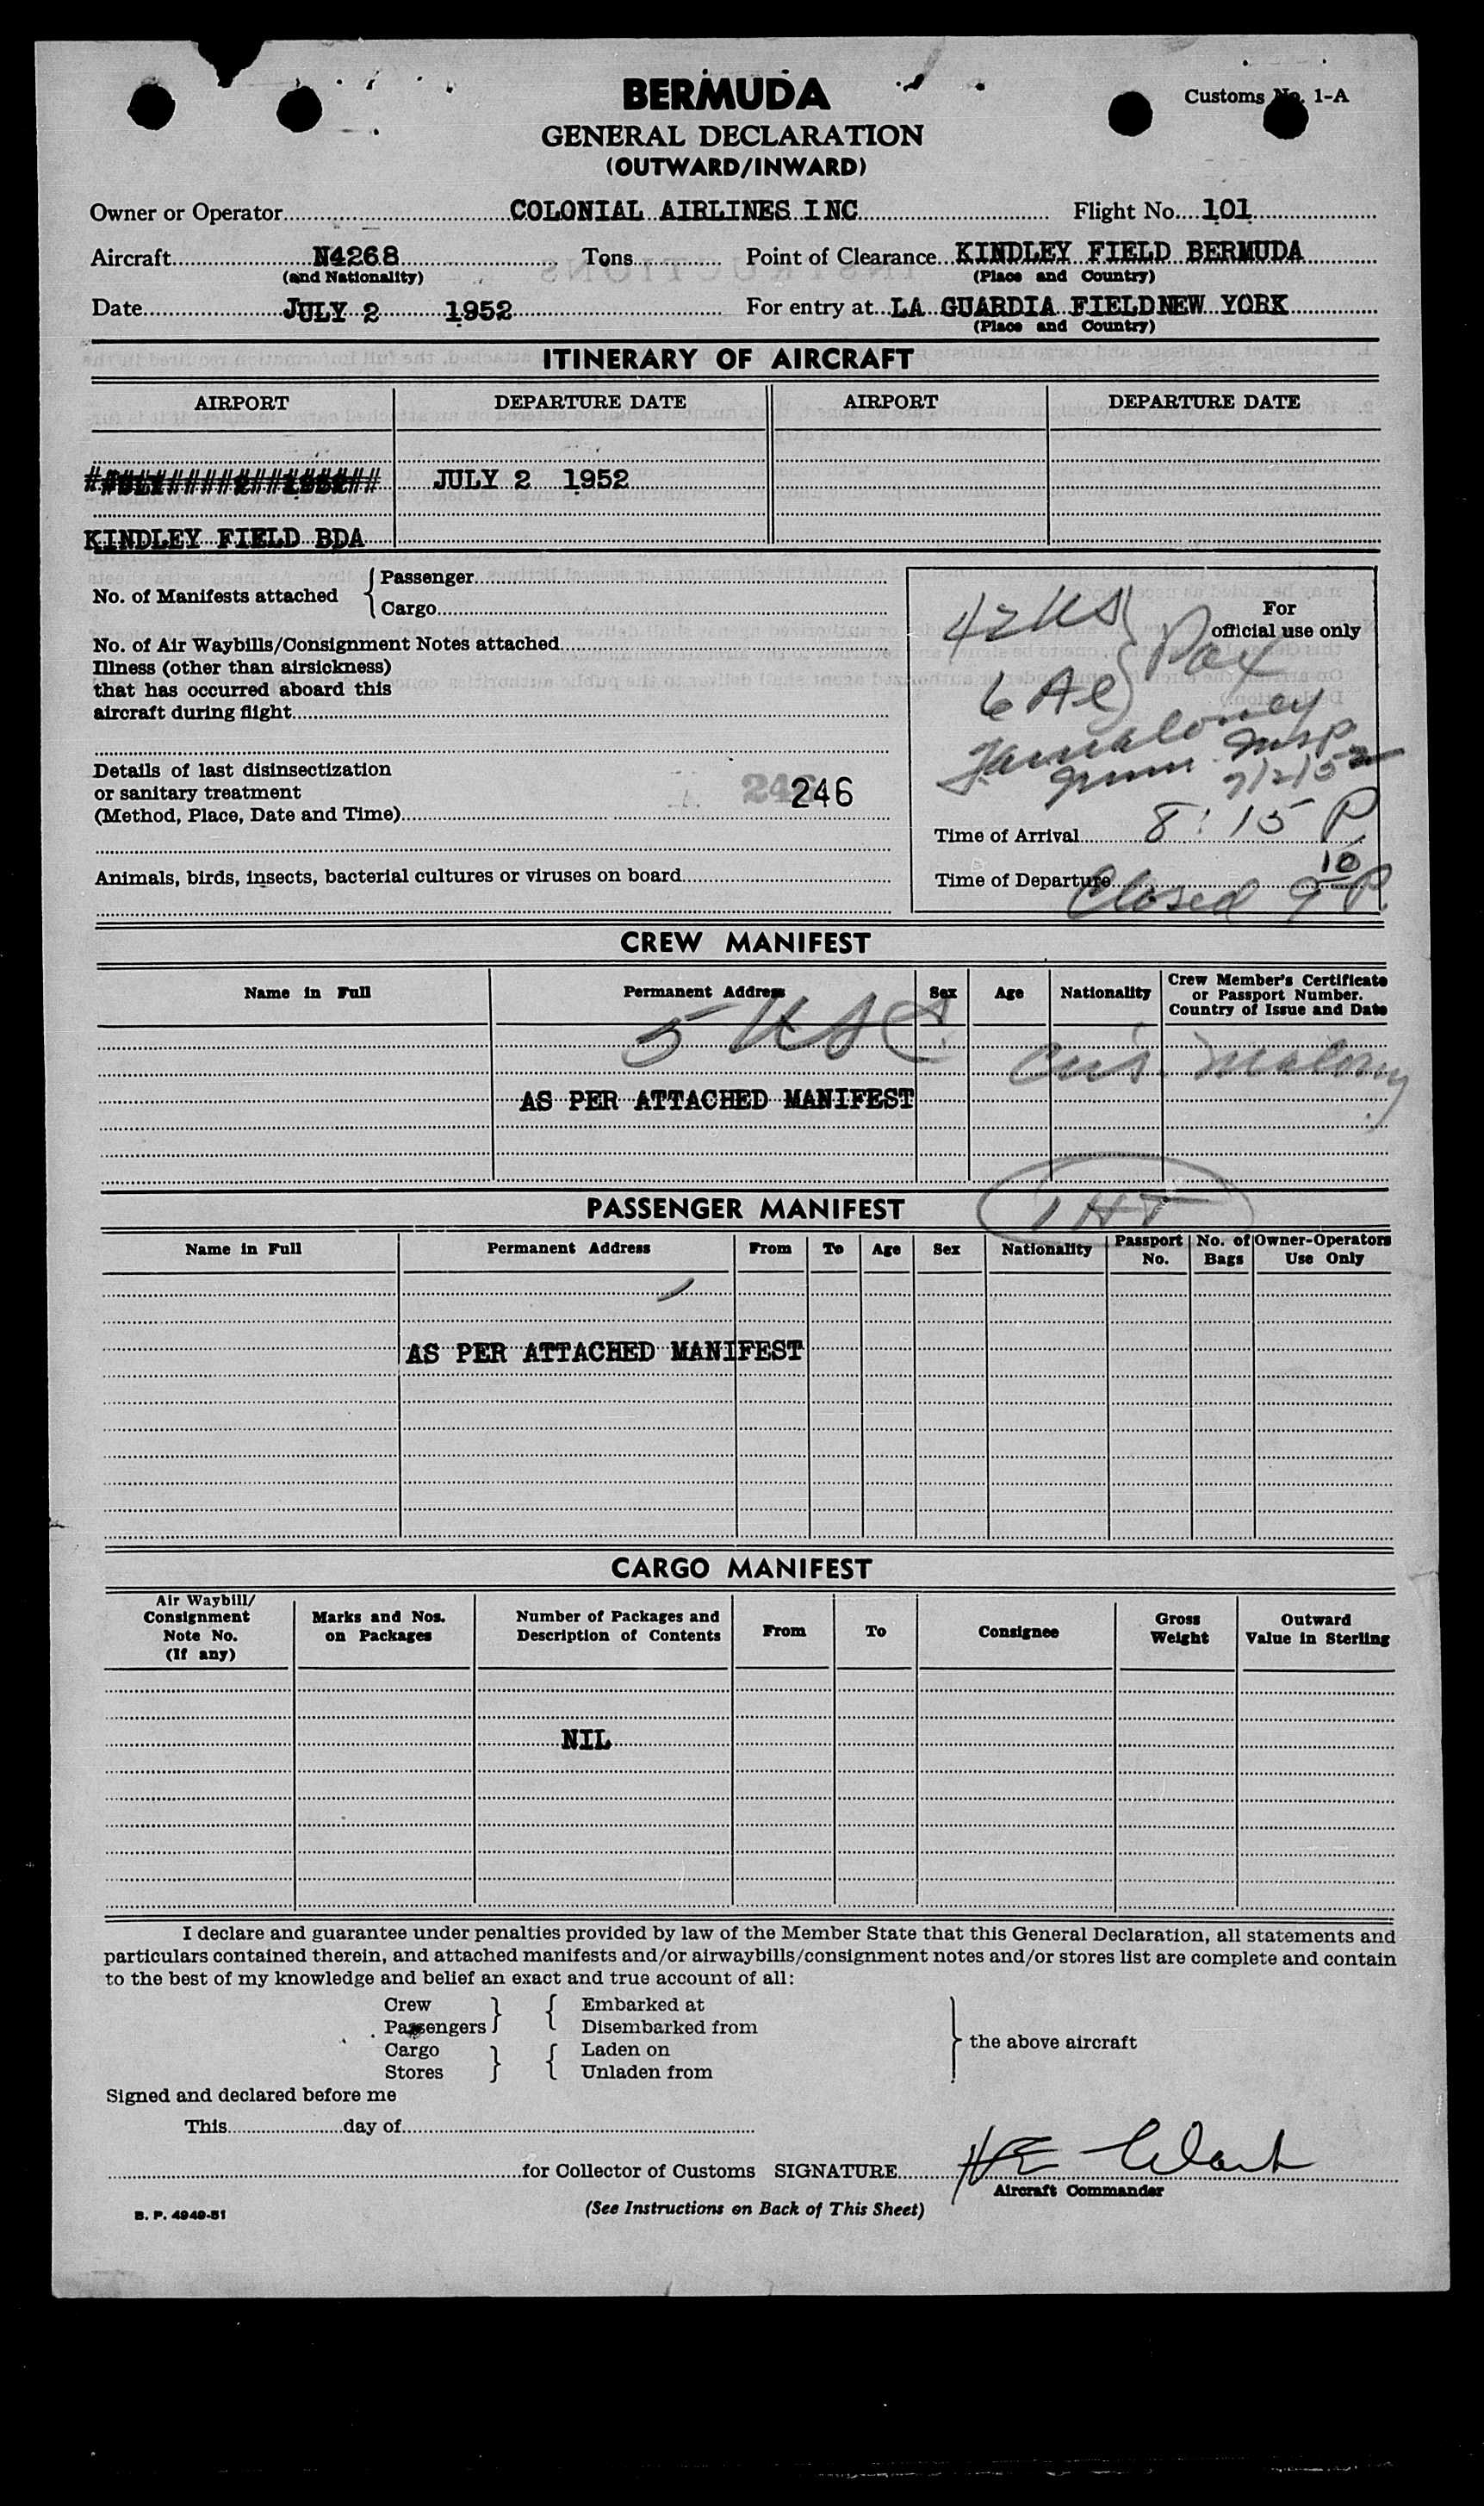 BERMUDA
Customs No. 1-A
GENERAL DECLARATION
(OUTWARD/INWARD)
Owner or Operator COLONIAL AIRLINES INC Flight No. 101
Aircraft N4268 Tons Point of Clearance KINDLEY FIELD BERMUDA
(and Nationality) (Place and Country)
Date JULY 2 1952 For entry at LA GUARDIA FIELDNEW YORK
(Place and Country)
ITINERARY OF AIRCRAFT
AIRPORT DEPARTURE DATE AIRPORT DEPARTURE DATE
JULY 2 1952
KINDLEY FIELD BDA
No. of Manifests attached { Passenger
Cargo
No. of Air Waybills/Consignment Notes attached
Illness (other than airsickness)
that has occurred aboard this
aircraft during flight
Details of last disinsectization
or sanitary treatment
(Method, Place, Date and Time)
246 246
Animals, birds, insects, bacterial cultures or viruses on board
For
official use only
42 US } Pax
6 Al
Maloney
Imm. Insp
7/2/52
Time of Arrival 8:15 P
Time of Departure Closed 9 10 P.
CREW MANIFEST
Name in Full Permanent Address Sex Age Nationality Crew Member's Certificate
or Passport Number.
Country of Issue and Date
5 USC Maloney
AS PER ATTACHED MANIFEST
1 HT
PASSENGER MANIFEST
Name in Full Permanent Address From To Age Sex Nationality Passport No. No. of Bags Owner-Operators Use Only
AS PER ATTACHED MANIFEST
CARGO MANIFEST
Air Waybill/ Consignment Note No. (If any) Marks and Nos. on Packages Number of Packages and Description of Contents From To Consignee Gross Weight Outward Value in Sterling
NIL
I declare and guarantee under penalties provided by law of the Member State that this General Declaration, all statements and
particulars contained therein, and attached manifests and/or airwaybills/consignment notes and/or stores list are complete and contain
to the best of my knowledge and belief an exact and true account of all:
Crew } { Embarked at
Passengers Disembarked from
Cargo } { Laden on } the above aircraft
Stores Unladen from
Signed and declared before me
This day of
for Collector of Customs SIGNATURE HE Clark
Aircraft Commander
B. P. 4949-51
(See Instructions on Back of This Sheet)